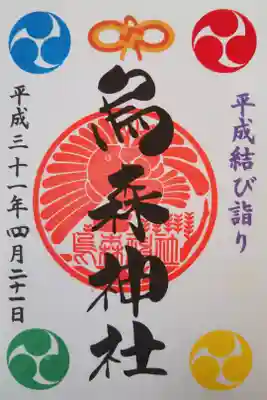 平成結び詣り
烏森神社
烏森神社
平成三十一年四月二十一日